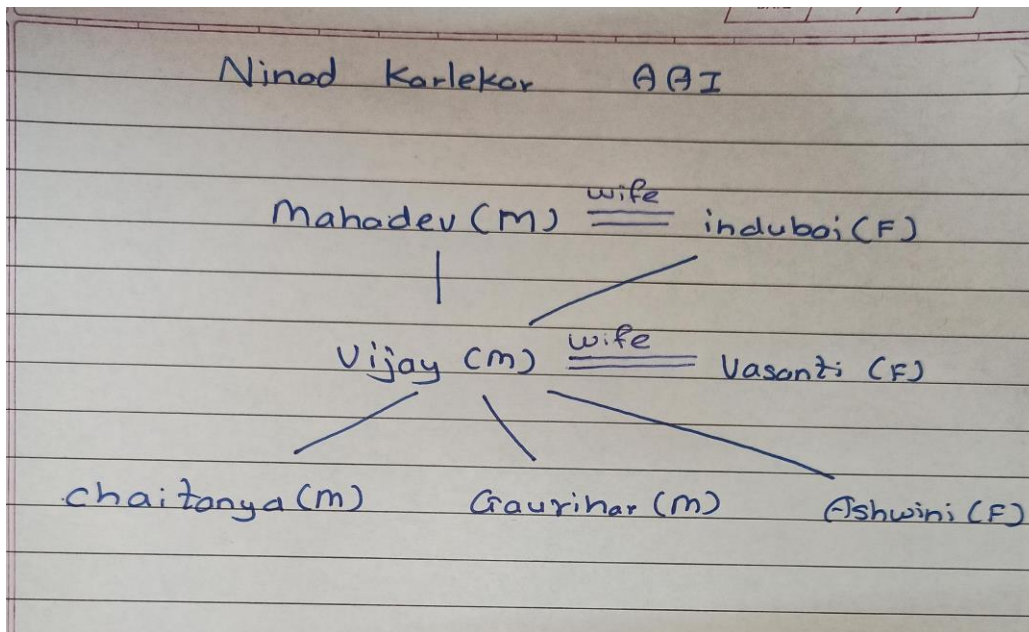 Ninad Karlekar AAI
wife
Mahadev (M) indubai (F)
wife
Vijay (M) Vasanti (F)
chaitanya (M) Gaurihar (M) Ashwini (F)